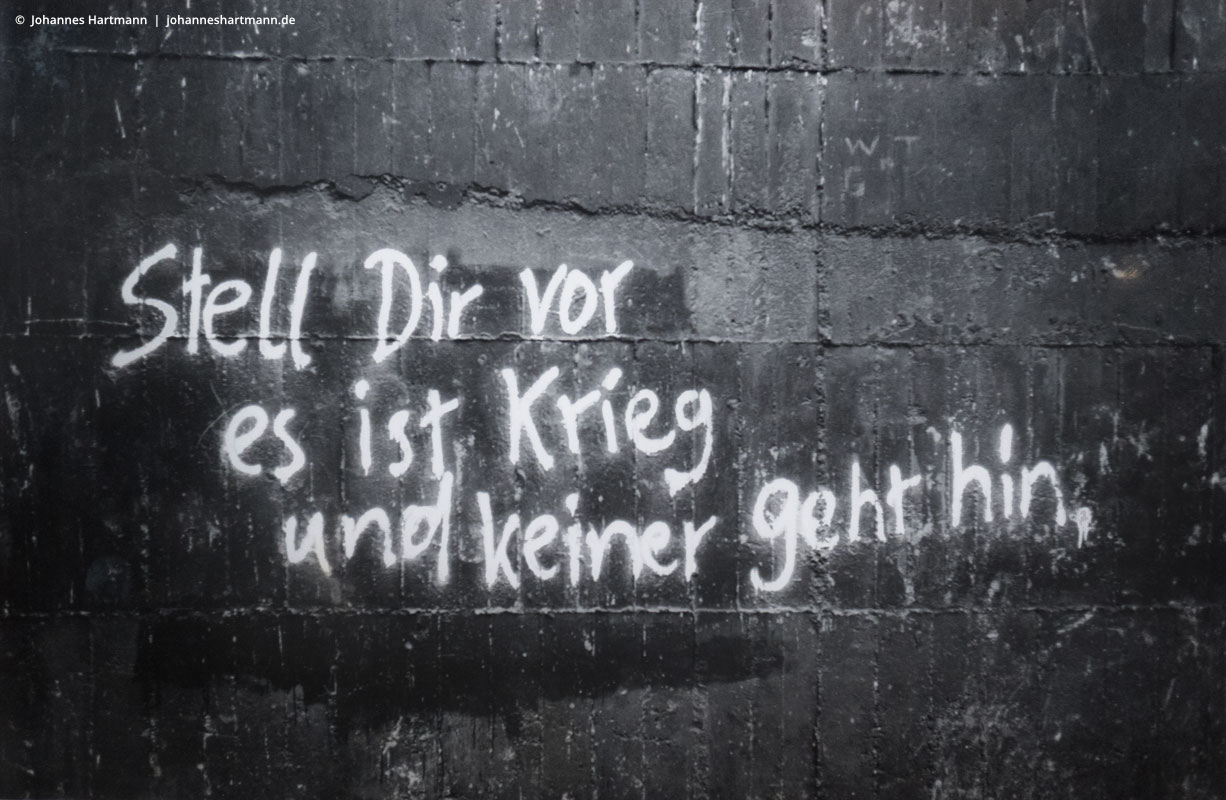 © Johannes Hartmann | johanneshartmann.de
Stell Dir vor
es ist Krieg
und keiner geht hin,